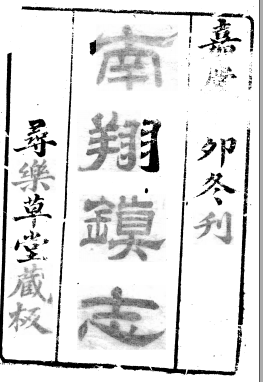 嘉慶 卯冬刊
南翔鎮志
尋樂草堂藏板